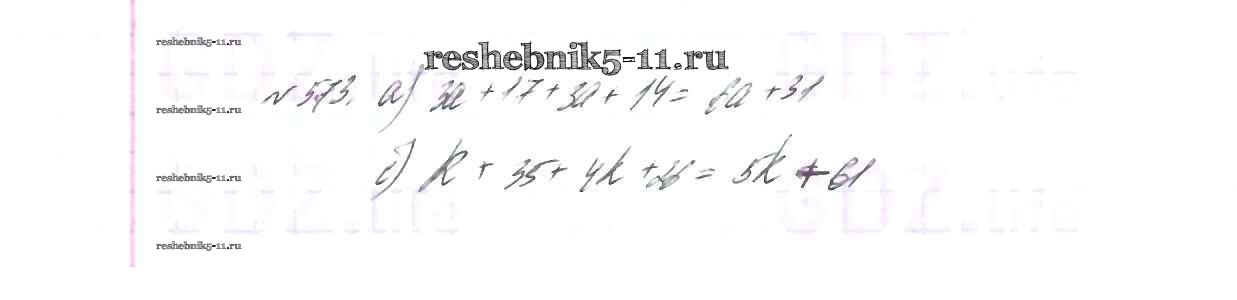 reshebnik5-11.ru
reshebnik5-11.ru
№ 573. а) 3a + 17 + 3a + 14 = 6a + 31
reshebnik5-11.ru
б) k + 35 + 4k + 26 = 5k + 61
reshebnik5-11.ru
reshebnik5-11.ru